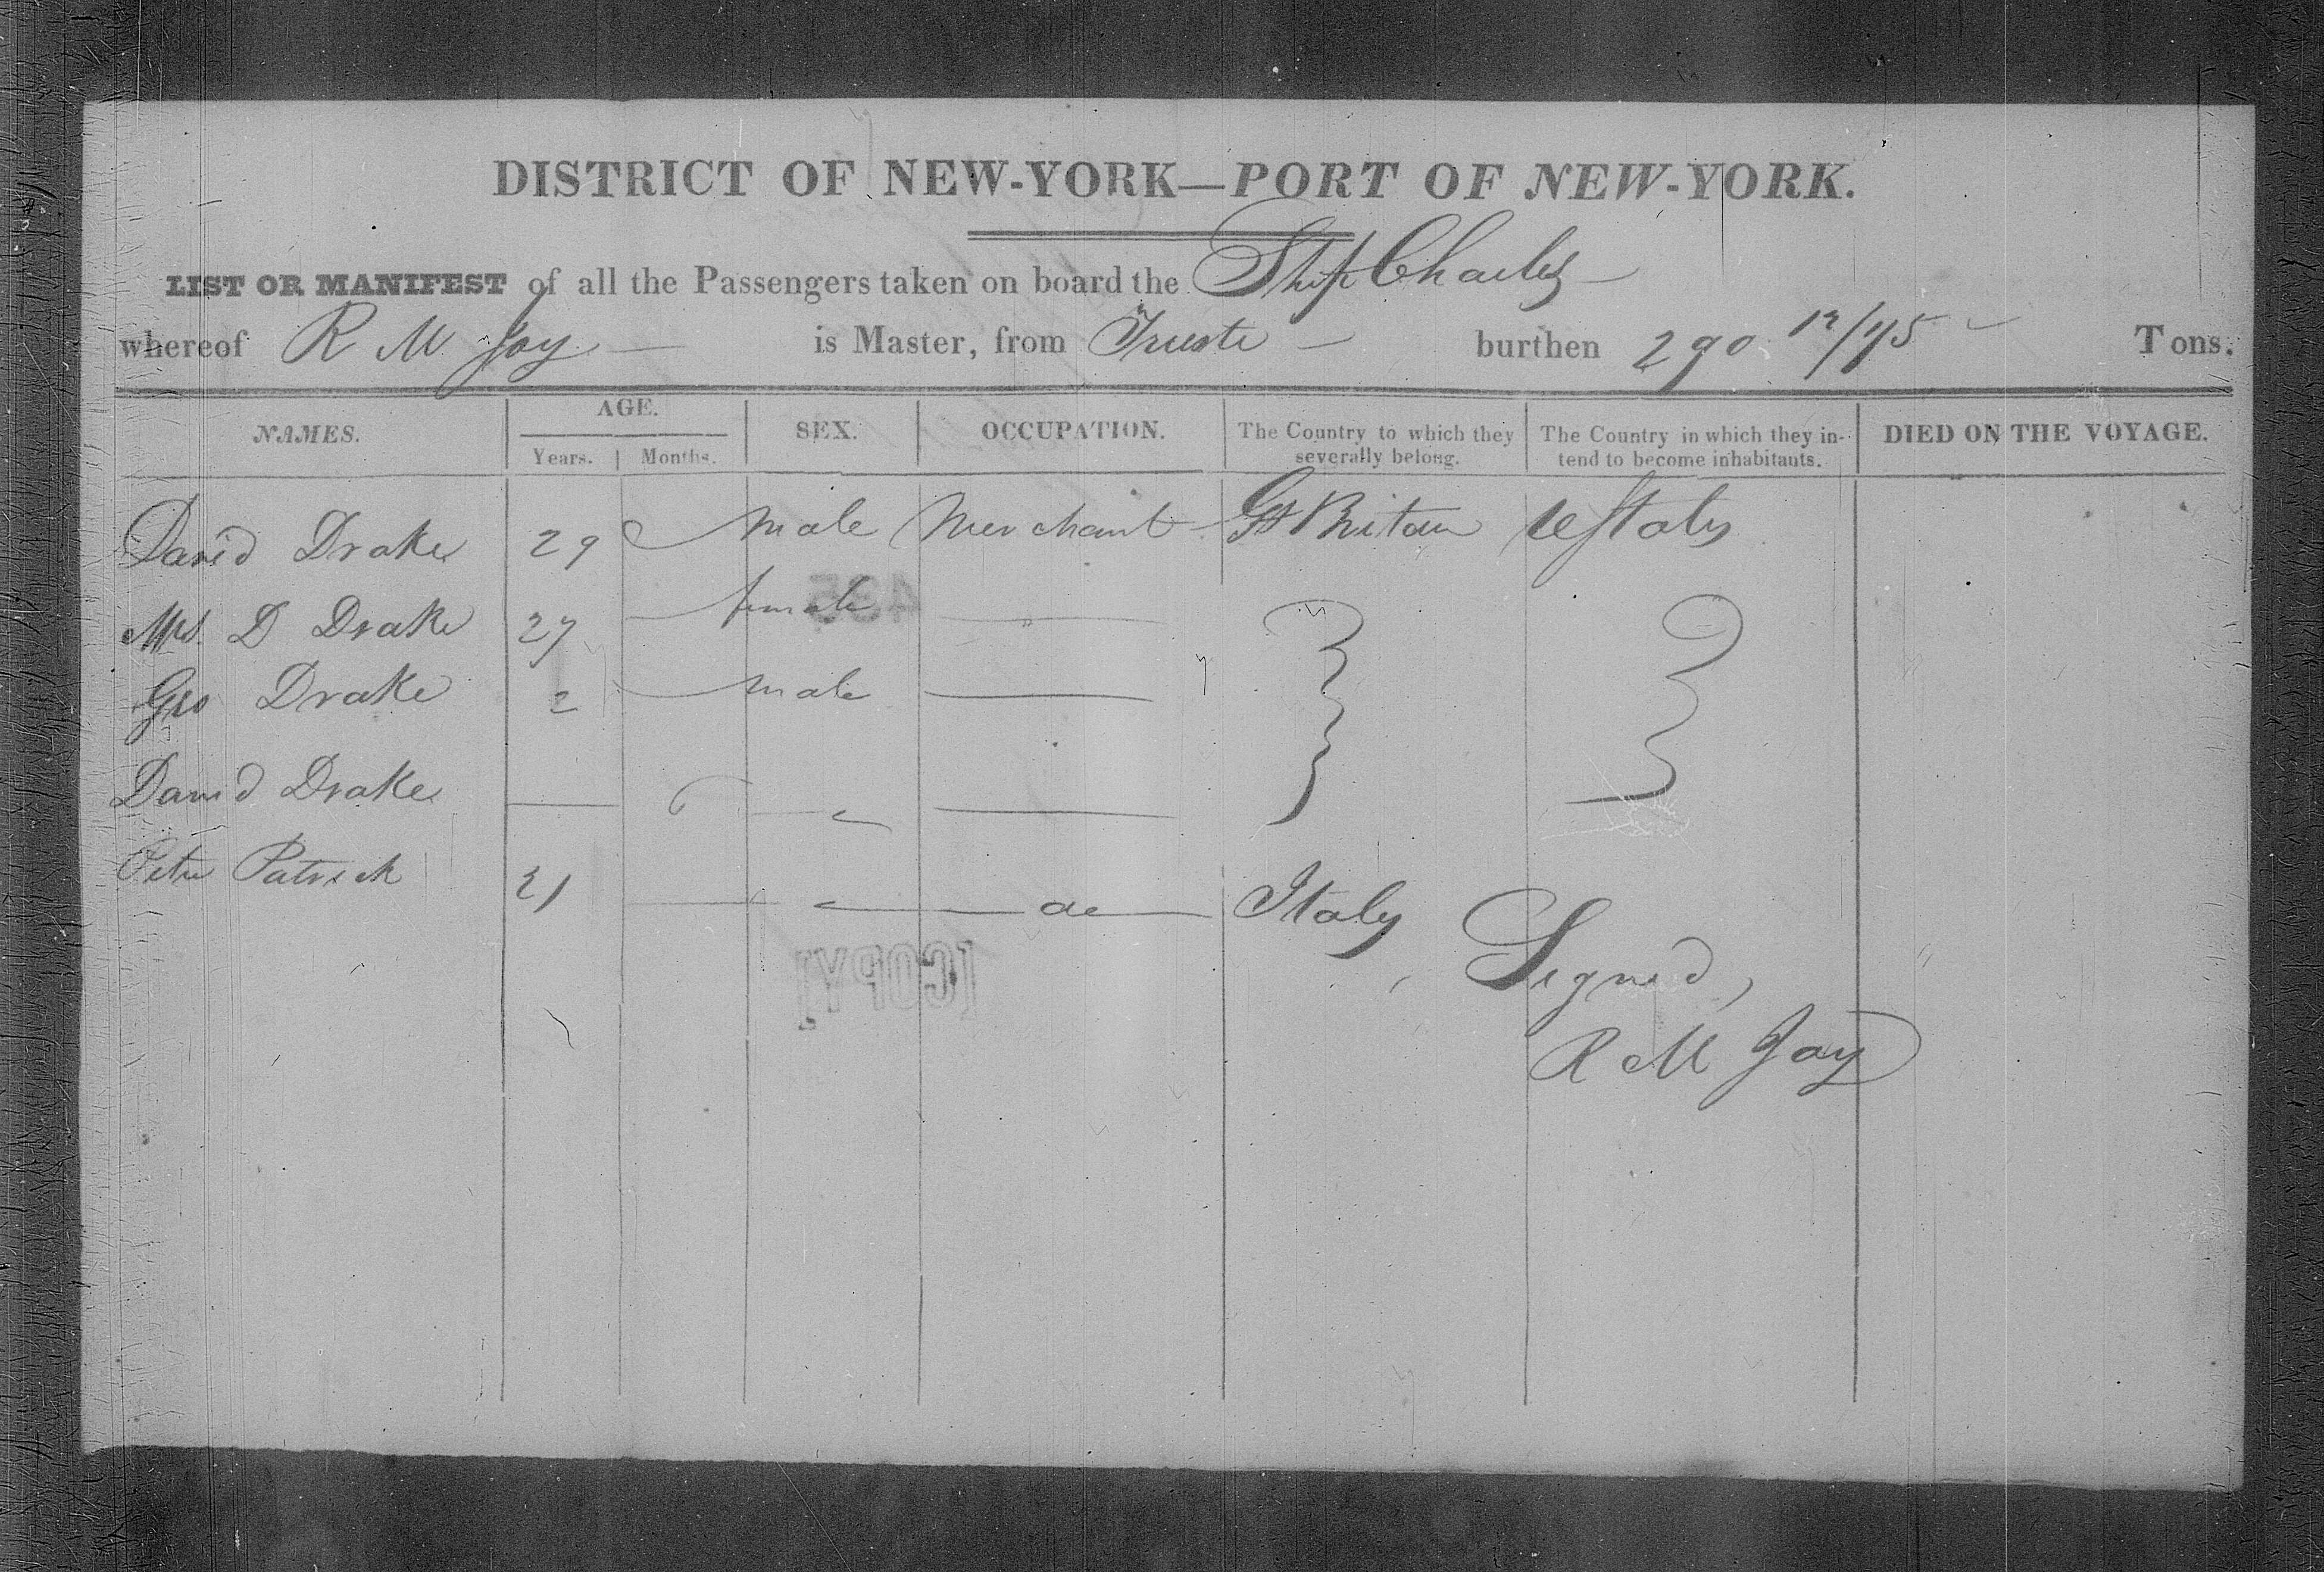 DISTRICT OF NEW-YORK—PORT OF NEW-YORK.
LIST OR MANIFEST of all the Passengers taken on board the Ship Charles
whereof R M Joy is Master, from Trieste burthen 290 Tons.
NAMES. AGE. SEX. OCCUPATION. The Country to which they severally belong. The Country in which they intend to become inhabitants. DIED ON THE VOYAGE.
Years. Months.
David Drake 29 male Merchant Gt Britain
Mrs. D Drake 27 female
435
Geo Drake 2 male
David Drake
Peter Patrick 21 Italy
[COPY]
Signed,
R M Joy